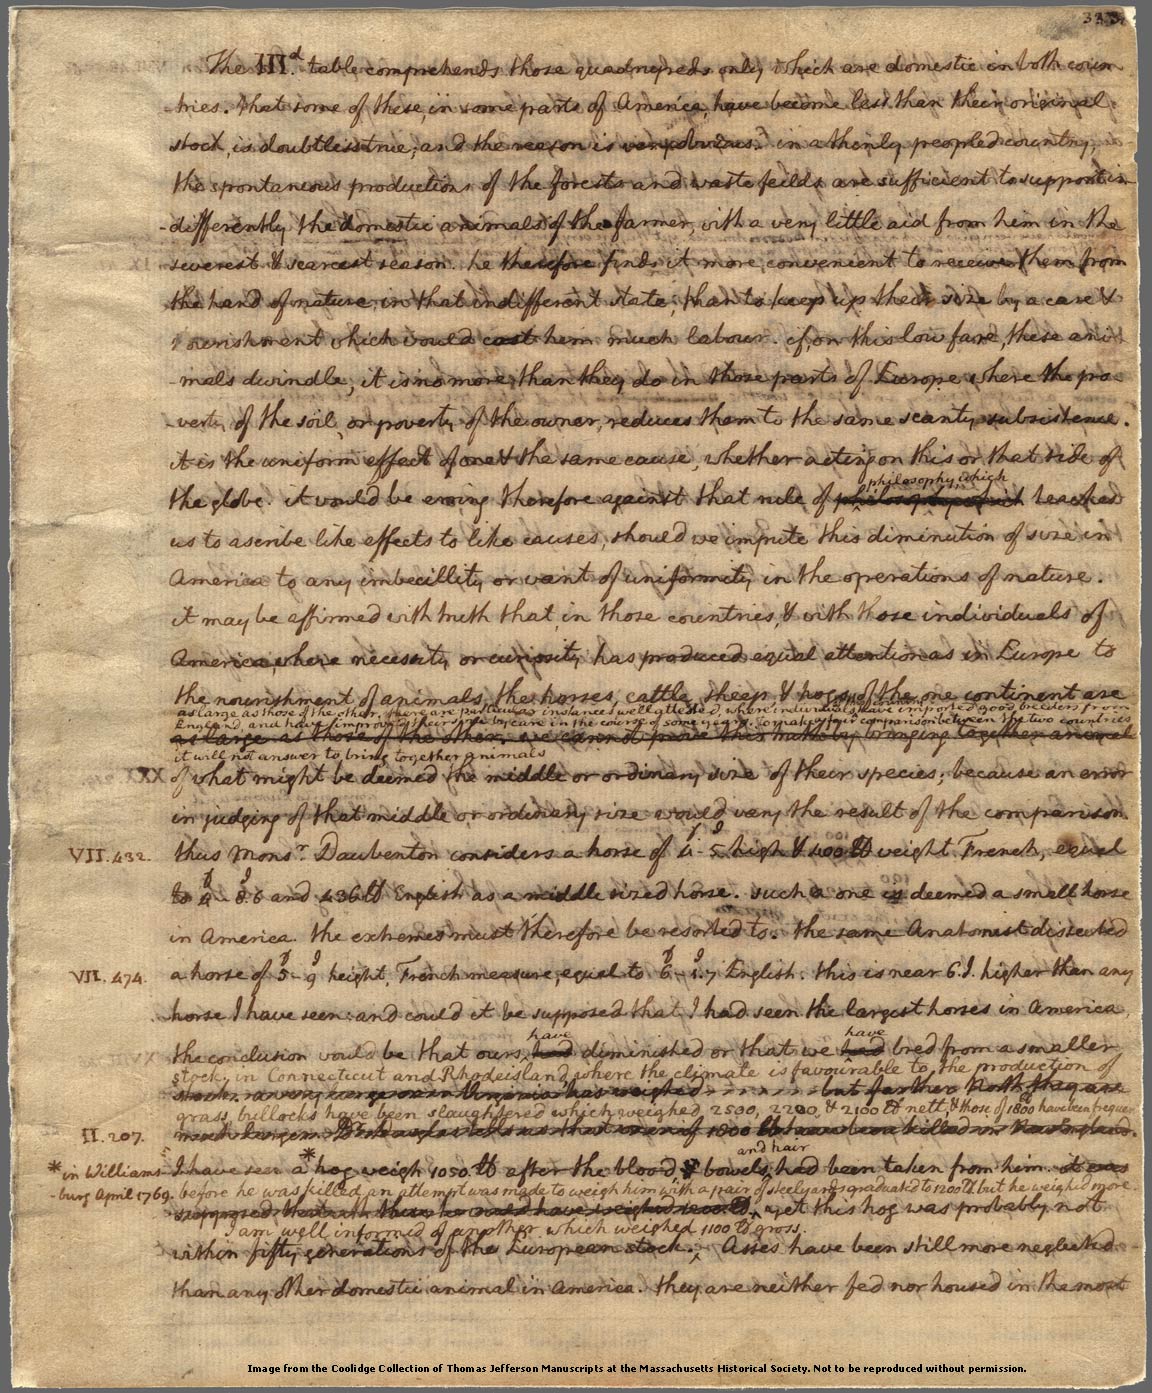 The IIId. table comprehends those quadrupeds only which are domestic in both coun
-tries. that some of these, in some parts of America, have become less than their original
stock, is doubtless true; and the reason is very obvious. in a thinly peopled country,
the spontaneous productions of the forests and waste feilds are sufficient to support in
-differently the domestic animals of the farmer, with a very little aid from him in the
severest & scarcest season. he therefore finds it more convenient to receive them from
the hand of nature in that indifferent state, than to keep up their size by a care &
nourishment which would cost him much labour. if, on this low fare, these ani
-mals dwindle, it is no more than they do in those parts of Europe where the po
-verty of the soil, or poverty of the owner, reduces them to the same scanty subsistence.
it is the uniform effect of one & the same cause, whether acting on this or that side of
philosophy which
the globe. it would be erring therefore against that rule of philosophy which teaches
us to ascribe like effects to like causes, should we impute this diminution of size in
America to any imbecillity or want of uniformity in the operations of nature.
it may be affirmed with truth that, in those countries, & with those individuals of
America, where necessity or curiosity has produced equal attention as in Europe to
the nourishment of animals, the horses, cattle, sheep, & hogs of the one continent are
as large as those of the other. there are particular instances well attested, where individuals of have imported good breeders from
England, and have improved their size by care in the course of some years. to make a fair comparison between the two countries
as large as those of the other. we cannot prove this truth by bringing together animals
it will not answer to bring together animals
XXX
of what might be deemed the middle or ordinary size of their species; because an error
in judging of that middle or ordinary size would vary the result of the comparison.
VII. 432. thus Monsr. Daubenton considers a horse of 4f-5I high & 400 ℔ weight French, equal
to 4f-8.6I and 436 ℔ English as a middle sized horse. such a one is deemed a small horse
in America. the extremes must therefore be resorted to. the same Anatomist dissected
VII. 474. a horse of 5f-9I height, French measure, equal to 6f-1.7I English. this is near 6.I. higher than any
horse I have seen: and could it be supposed that I had seen the largest horses in America,
have have
the conclusion would be that ours had diminished or that we had bred from a smaller
stock. in Connecticut and Rhodeisland, where the climate is favourable to the production of
stock. a very large ox in Virginia has weighed but farther North they are
grass, bullocks have been slaughtered which weighed 2500, 2200, & 2100 ℔ nett; & those of 1800 have been frequent
II. 207. much larger. us that oxen of 1800 ℔ have been killed in New England.
and hair
* in Williams
-burg April 1769.
I have seen a* hog weigh 1050 ℔ after the blood & bowels, had been taken from him. it was
before he was killed an attempt was made to weigh him with a pair of steelyards graduated to 1200 ℔. but he weighed more.
supposed that he would have weighed yet this hog was probably not
I am well informed of another which weighed 1100 ℔ gross.
within fifty generations of the European stock. Asses have been still more neglected
than any other domestic animal in America. they are neither fed nor housed in the most
Image from the Coolidge Collection of Thomas Jefferson Manuscripts at the Massachusetts Historical Society. Not to be reproduced without permission.